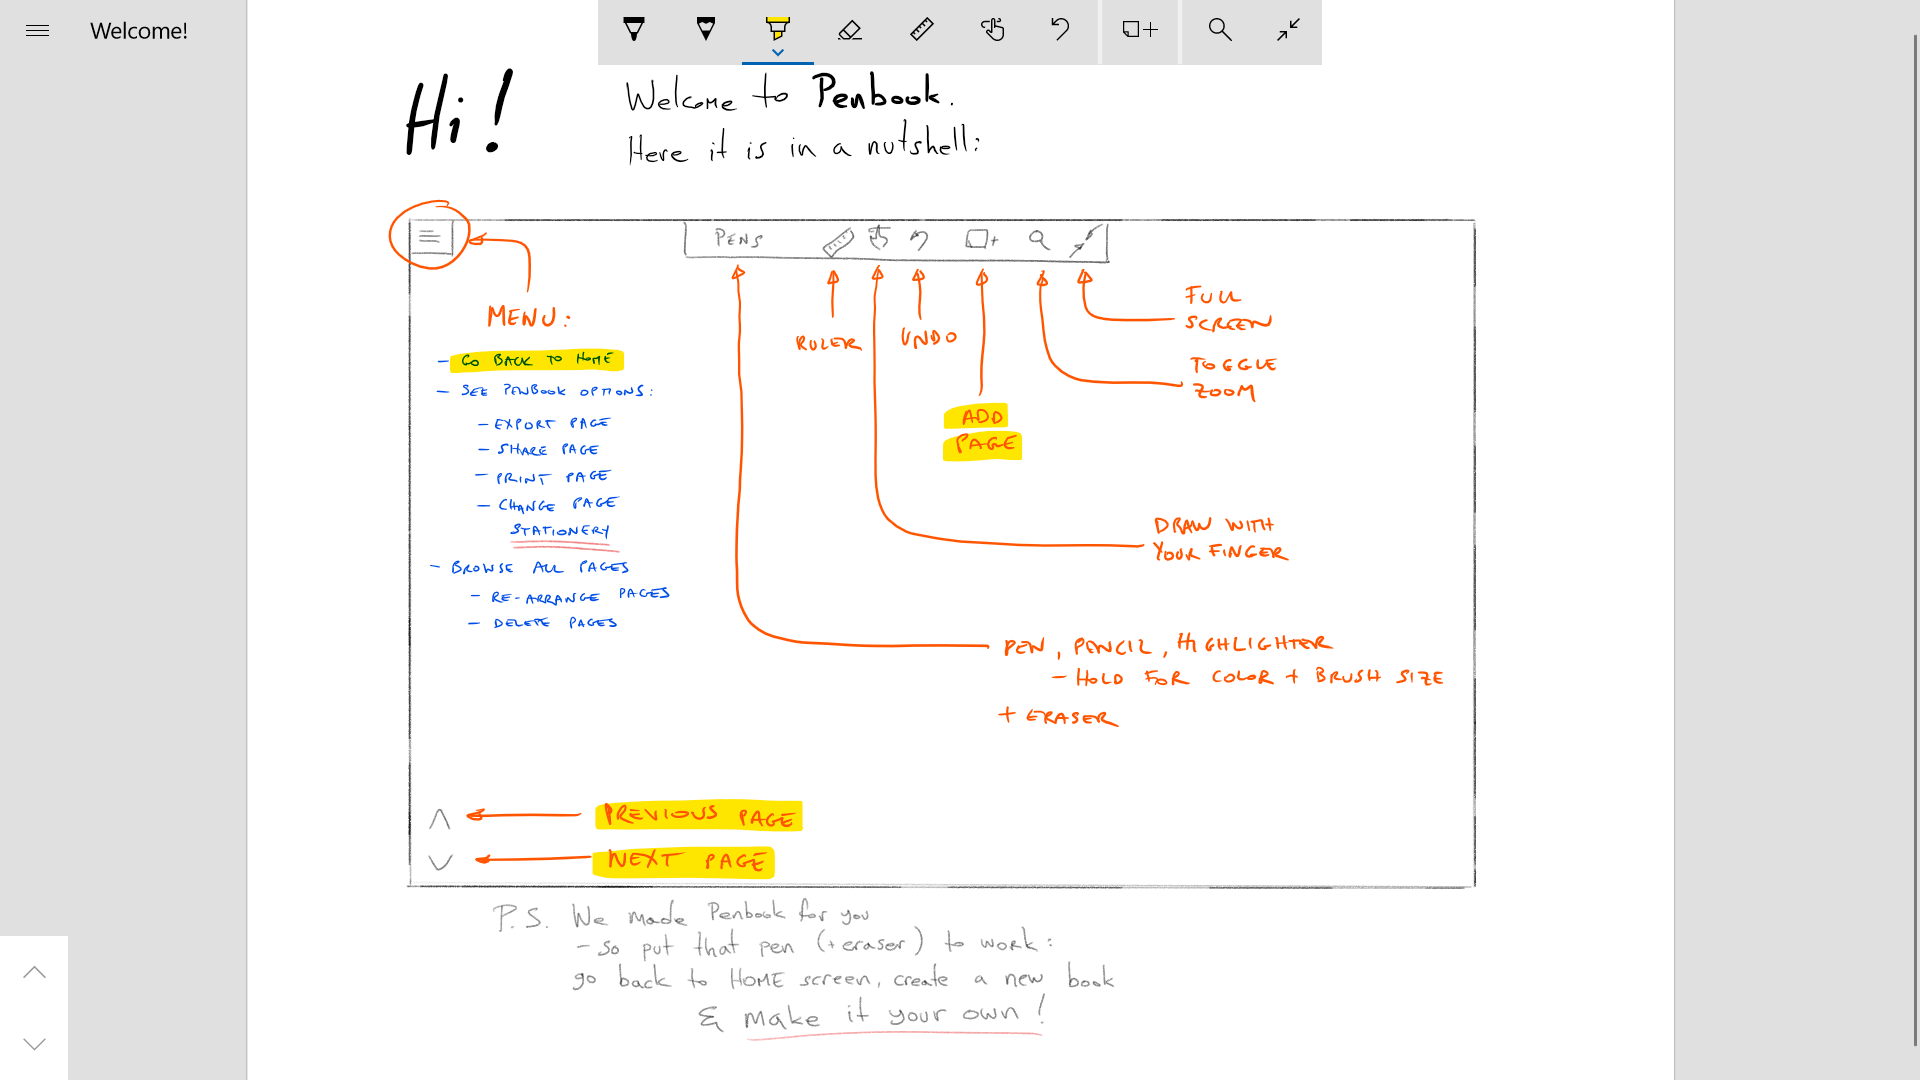 Welcome!
Hi!
Welcome to Penbook.
Here it is in a nutshell:
PENS
MENU:
- GO BACK TO HOME
- SEE PENBOOK OPTIONS:
- EXPORT PAGE
- SHARE PAGE
- PRINT PAGE
- CHANGE PAGE
STATIONERY
- BROWSE ALL PAGES
- RE-ARRANGE PAGES
- DELETE PAGES
RULER
UNDO
ADD
PAGE
FULL
SCREEN
TOGGLE
ZOOM
DRAW WITH
YOUR FINGER
PEN, PENCIL, HIGHLIGHTER
- HOLD FOR COLOR + BRUSH SIZE
+ ERASER
PREVIOUS PAGE
NEXT PAGE
P.S. We made Penbook for you
- so put that pen (+ eraser) to work:
go back to HOME screen, create a new book
& make it your own!